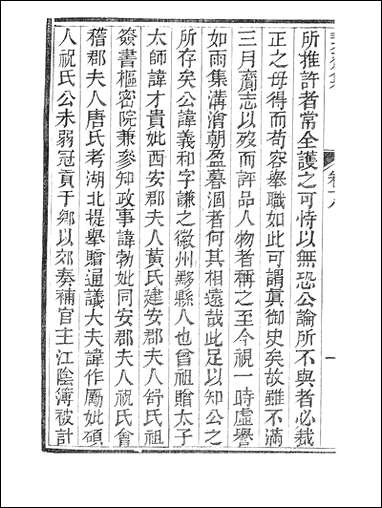 所推許者常全護之可恃以無恐公論所不與者必裁
正之毋得而苟容舉職如此可謂真御史矣故雖不滿
三月齎志以歿而評品人物者稱之至今視一時虛譽
如雨集溝澮朝盈暮涸者何其相遠哉此足以知公之
所存矣公諱義和字謙之徽州黟縣人也曾祖贈太子
太師諱才貴妣西安郡夫人黃氏建安郡夫人舒氏祖
簽書樞密院兼參知政事諱勃妣同安郡夫人祝氏會
稽郡夫人唐氏考湖北提舉贈通議大夫諱作勵妣碩
人祝氏公未弱冠貢于鄉以郊奏補官主江陰簿被計
卷十八
一